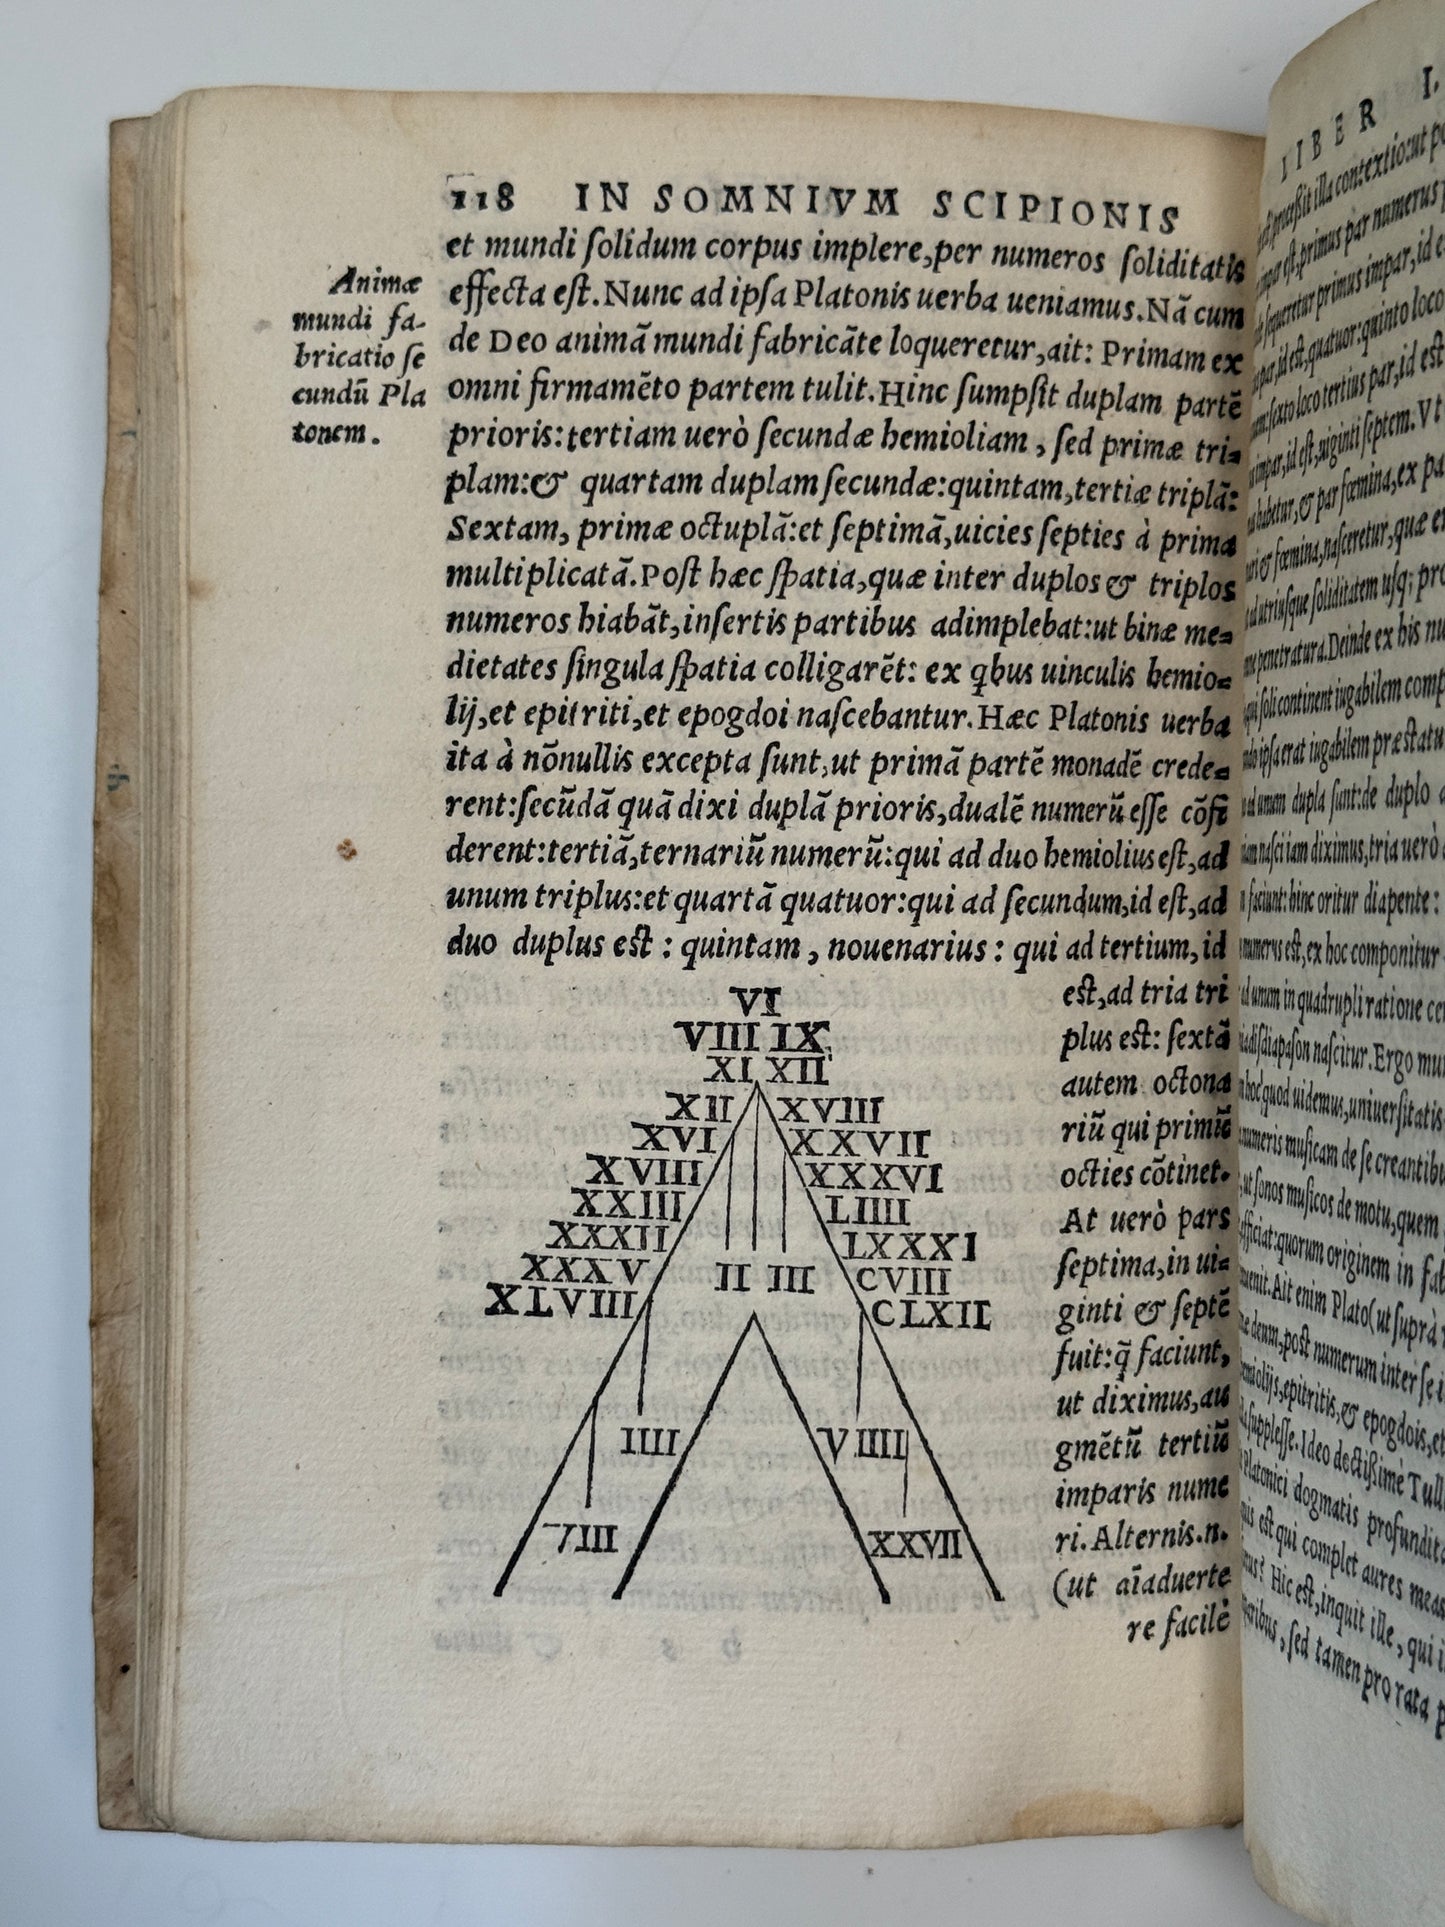 118 IN SOMNIVM SCIPIONIS
et mundi ſolidum corpus implere,per numeros ſoliditatis
effecta eſt.Nunc ad ipſa Platonis uerba ueniamus.Nã cum
de Deo animã mundi fabricãte loqueretur,ait: Primam ex
omni firmamẽto partem tulit.Hinc ſumpſit duplam partẽ
prioris:tertiam uerò ſecundæ hemioliam, ſed primæ tri-
plam:& quartam duplam ſecundæ:quintam,tertiæ triplã:
Sextam, primæ octuplã:et ſeptimã,uicies ſepties à prima
multiplicatã.Poſt hæc ſpatia,quæ inter duplos & triplos
numeros hiabãt,inſertis partibus adimplebat:ut binæ me-
dietates ſingula ſpatia colligarẽt: ex qbus uinculis hemio-
lij,et epitriti,et epogdoi naſcebantur.Hæc Platonis uerba
ita à nõnullis excepta ſunt,ut primã partẽ monadẽ crede-
rent:ſecũdã quã dixi duplã prioris,dualẽ numerũ eſſe cõſi
derent:tertiã,ternariũ numerũ:qui ad duo hemiolius eſt,ad
unum triplus:et quartã quatuor:qui ad ſecundum,id eſt,ad
duo duplus est : quintam , nouenarius : qui ad tertium, id
eſt,ad tria tri
plus eſt: ſextã
autem octona
riũ qui primũ
octies cõtinet.
At uerò pars
ſeptima,in ui-
ginti & ſeptẽ
fuit:q̃ faciunt,
ut diximus,au
gmẽtũ tertiũ
imparis nume
ri. Alternis.n.
(ut aĩaduerte
re facilè
Animæ
mundi fa-
bricatio ſe
cundũ Pla
tonem.
VI
VIII IX
XI XII
XII XVIII
XVI XXVII
XVIII XXXVI
XXIII LIIII
XXXII LXXXI
XXXV CVIII
XLVIII CLXII
II III
IIII VIIII
VIII XXVII
LIBER I.
primus par numerus
primus impar, id e
quatuor:quinto loco
loco tertius par,id eſt
uiginti ſeptem. Vt
& par fœmina,ex pa
fœmina,naſceretur,quæ e
ſoliditatem uſq; pro
penetratura.Deinde ex his nu
ſoli continent iugabilem comp
ipſa erat iugabilem præſtatu
unum dupla ſunt:de duplo
naſci iam diximus,tria uerò
faciunt: hinc oritur diapente:
numerus eſt,ex hoc componitur
unum in quadrupli ratione ce
diſdiapaſon naſcitur.Ergo mu
hoc quod uidemus,uniuerſitatis
numeris muſicam de ſe creantibu
ut ſonos muſicos de motu,quem
quorum originem in fa
Ait enim Plato(ut ſuprà
deum,poſt numerum inter ſe i
epitritis,& epogdois,et
Ideo doctißimè Tull
Platonici dogmatis profundita
eſt qui complet aures meas
Hic eſt,inquit ille, qui i
ſed tamen pro rata p